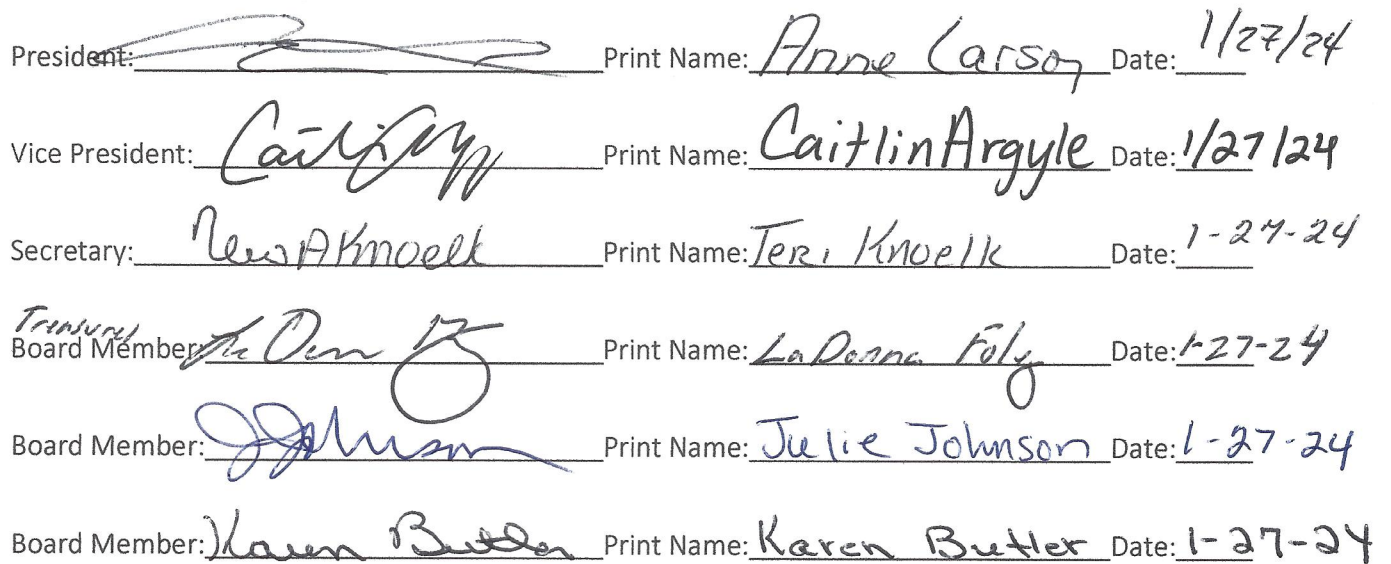 President: Print Name: Anne Carson Date: 1/27/24
Vice President: Print Name: Caitlin Argyle Date: 1/27/24
Secretary: Teri A Knoelk Print Name: Teri Knoelk Date: 1-27-24
Treasurer
Board Member: Print Name: LaDonna Foly Date: 1-27-24
Board Member: JJohnson Print Name: Julie Johnson Date: 1-27-24
Board Member: Karen Butler Print Name: Karen Butler Date: 1-27-24